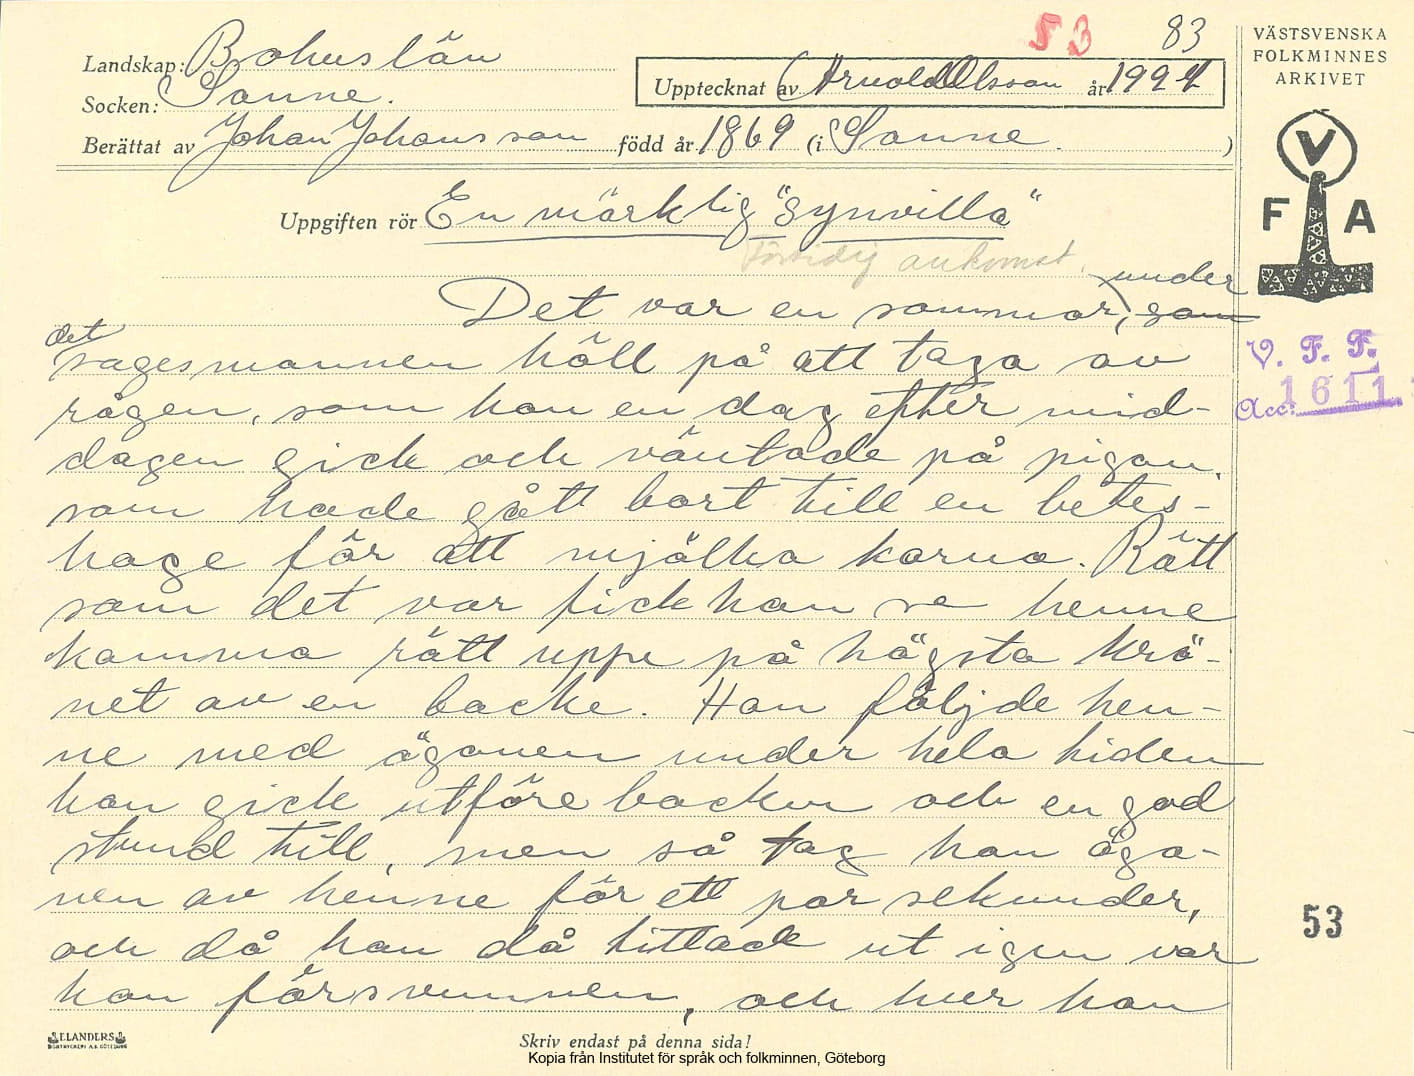 53 83
Landskap: Bohuslän
Upptecknat av Arnold Olsson år 1924
Socken: Sanne.
Berättat av Johan Johansson född år 1869 (i Sanne. )
VÄSTSVENSKA
FOLKMINNES
ARKIVET
V
F A
Uppgiften rör En märklig "synvilla"
Förtidig ankomst.
under
Det var en sommar, som
det
sagesmannen höll på att taga av
rågen, som han en dag efter mid-
dagen gick och väntade på pigan,
som hade gått bort till en betes-
hage för att mjölka korna. Rätt
som det var fick han se henne
komma rätt uppe på högsta krö-
net av en backe. Han följde hen-
ne med ögonen under hela tiden
hon gick utföre backen och en god
stund till, men så tog han ögo-
nen av henne för ett par sekunder,
och då han då tittade ut igen var
hon försvunnen, och hur han
V. F. F.
Acc: 1611
53
ELANDERS
BOKTRYCKERI A.B. GÖTEBORG
Skriv endast på denna sida!
Kopia från Institutet för språk och folkminnen, Göteborg